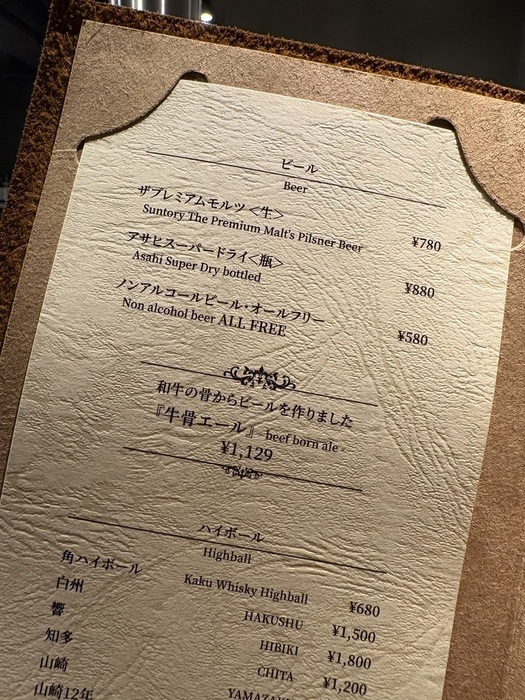 ビール
Beer
ザプレミアムモルツ<生>
Suntory The Premium Malt's Pilsner Beer ¥780
アサヒスーパードライ<瓶>
Asahi Super Dry bottled ¥880
ノンアルコールビール・オールフリー
Non alcohol beer ALL FREE ¥580
和牛の骨からビールを作りました
『牛骨エール』 - beef born ale -
¥1,129
ハイボール
Highball
角ハイボール Kaku Whisky Highball ¥680
白州 HAKUSHU ¥1,500
響 HIBIKI ¥1,800
知多 CHITA ¥1,200
山崎
山崎12年